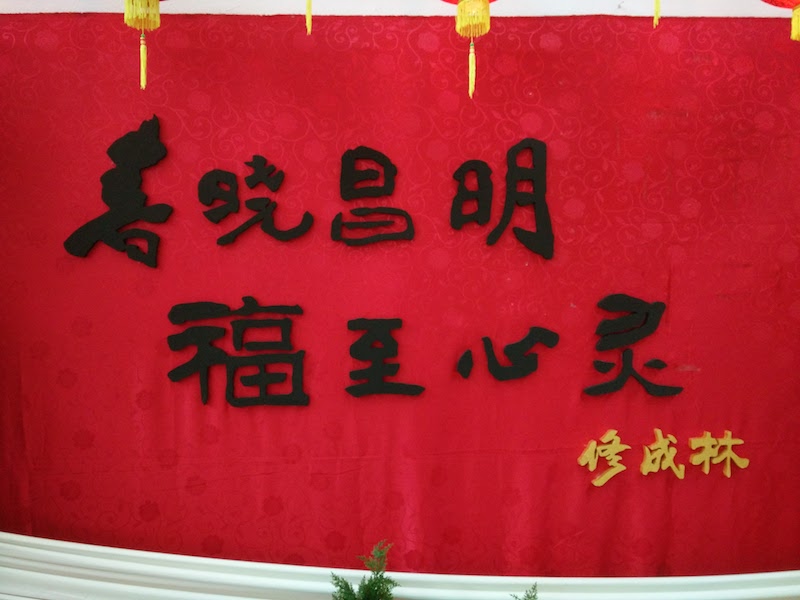 春晓昌明
福至心灵
修成林